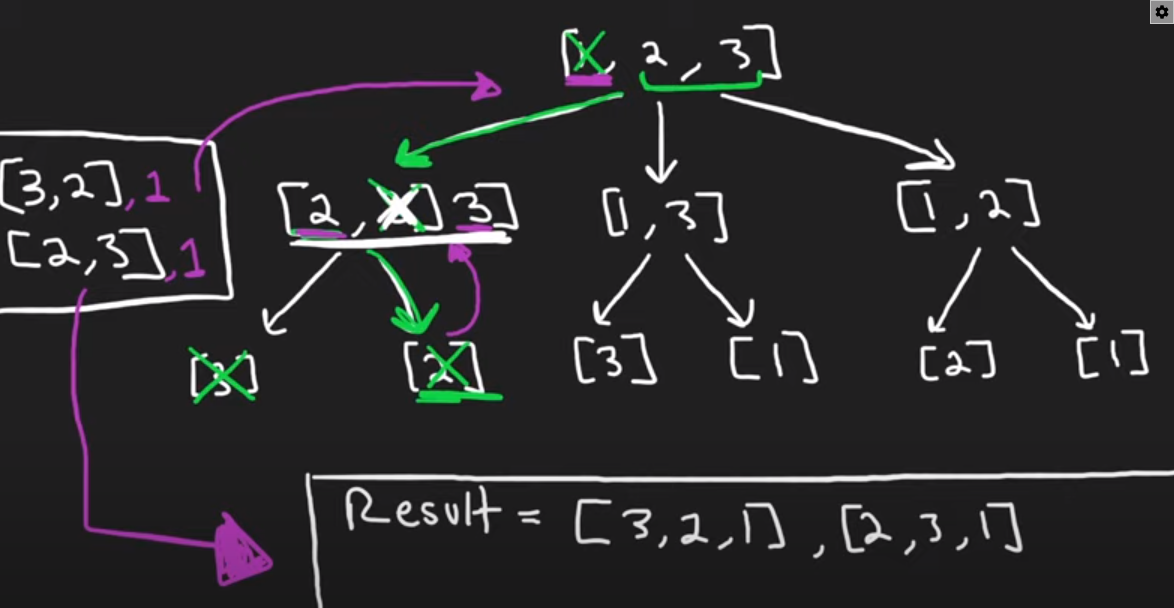 [1, 2, 3]
[3,2],1
[2,3],1
[2, 3] [1,3] [1,2]
[3] [2] [3] [1] [2] [1]
Result = [3,2,1], [2,3,1]